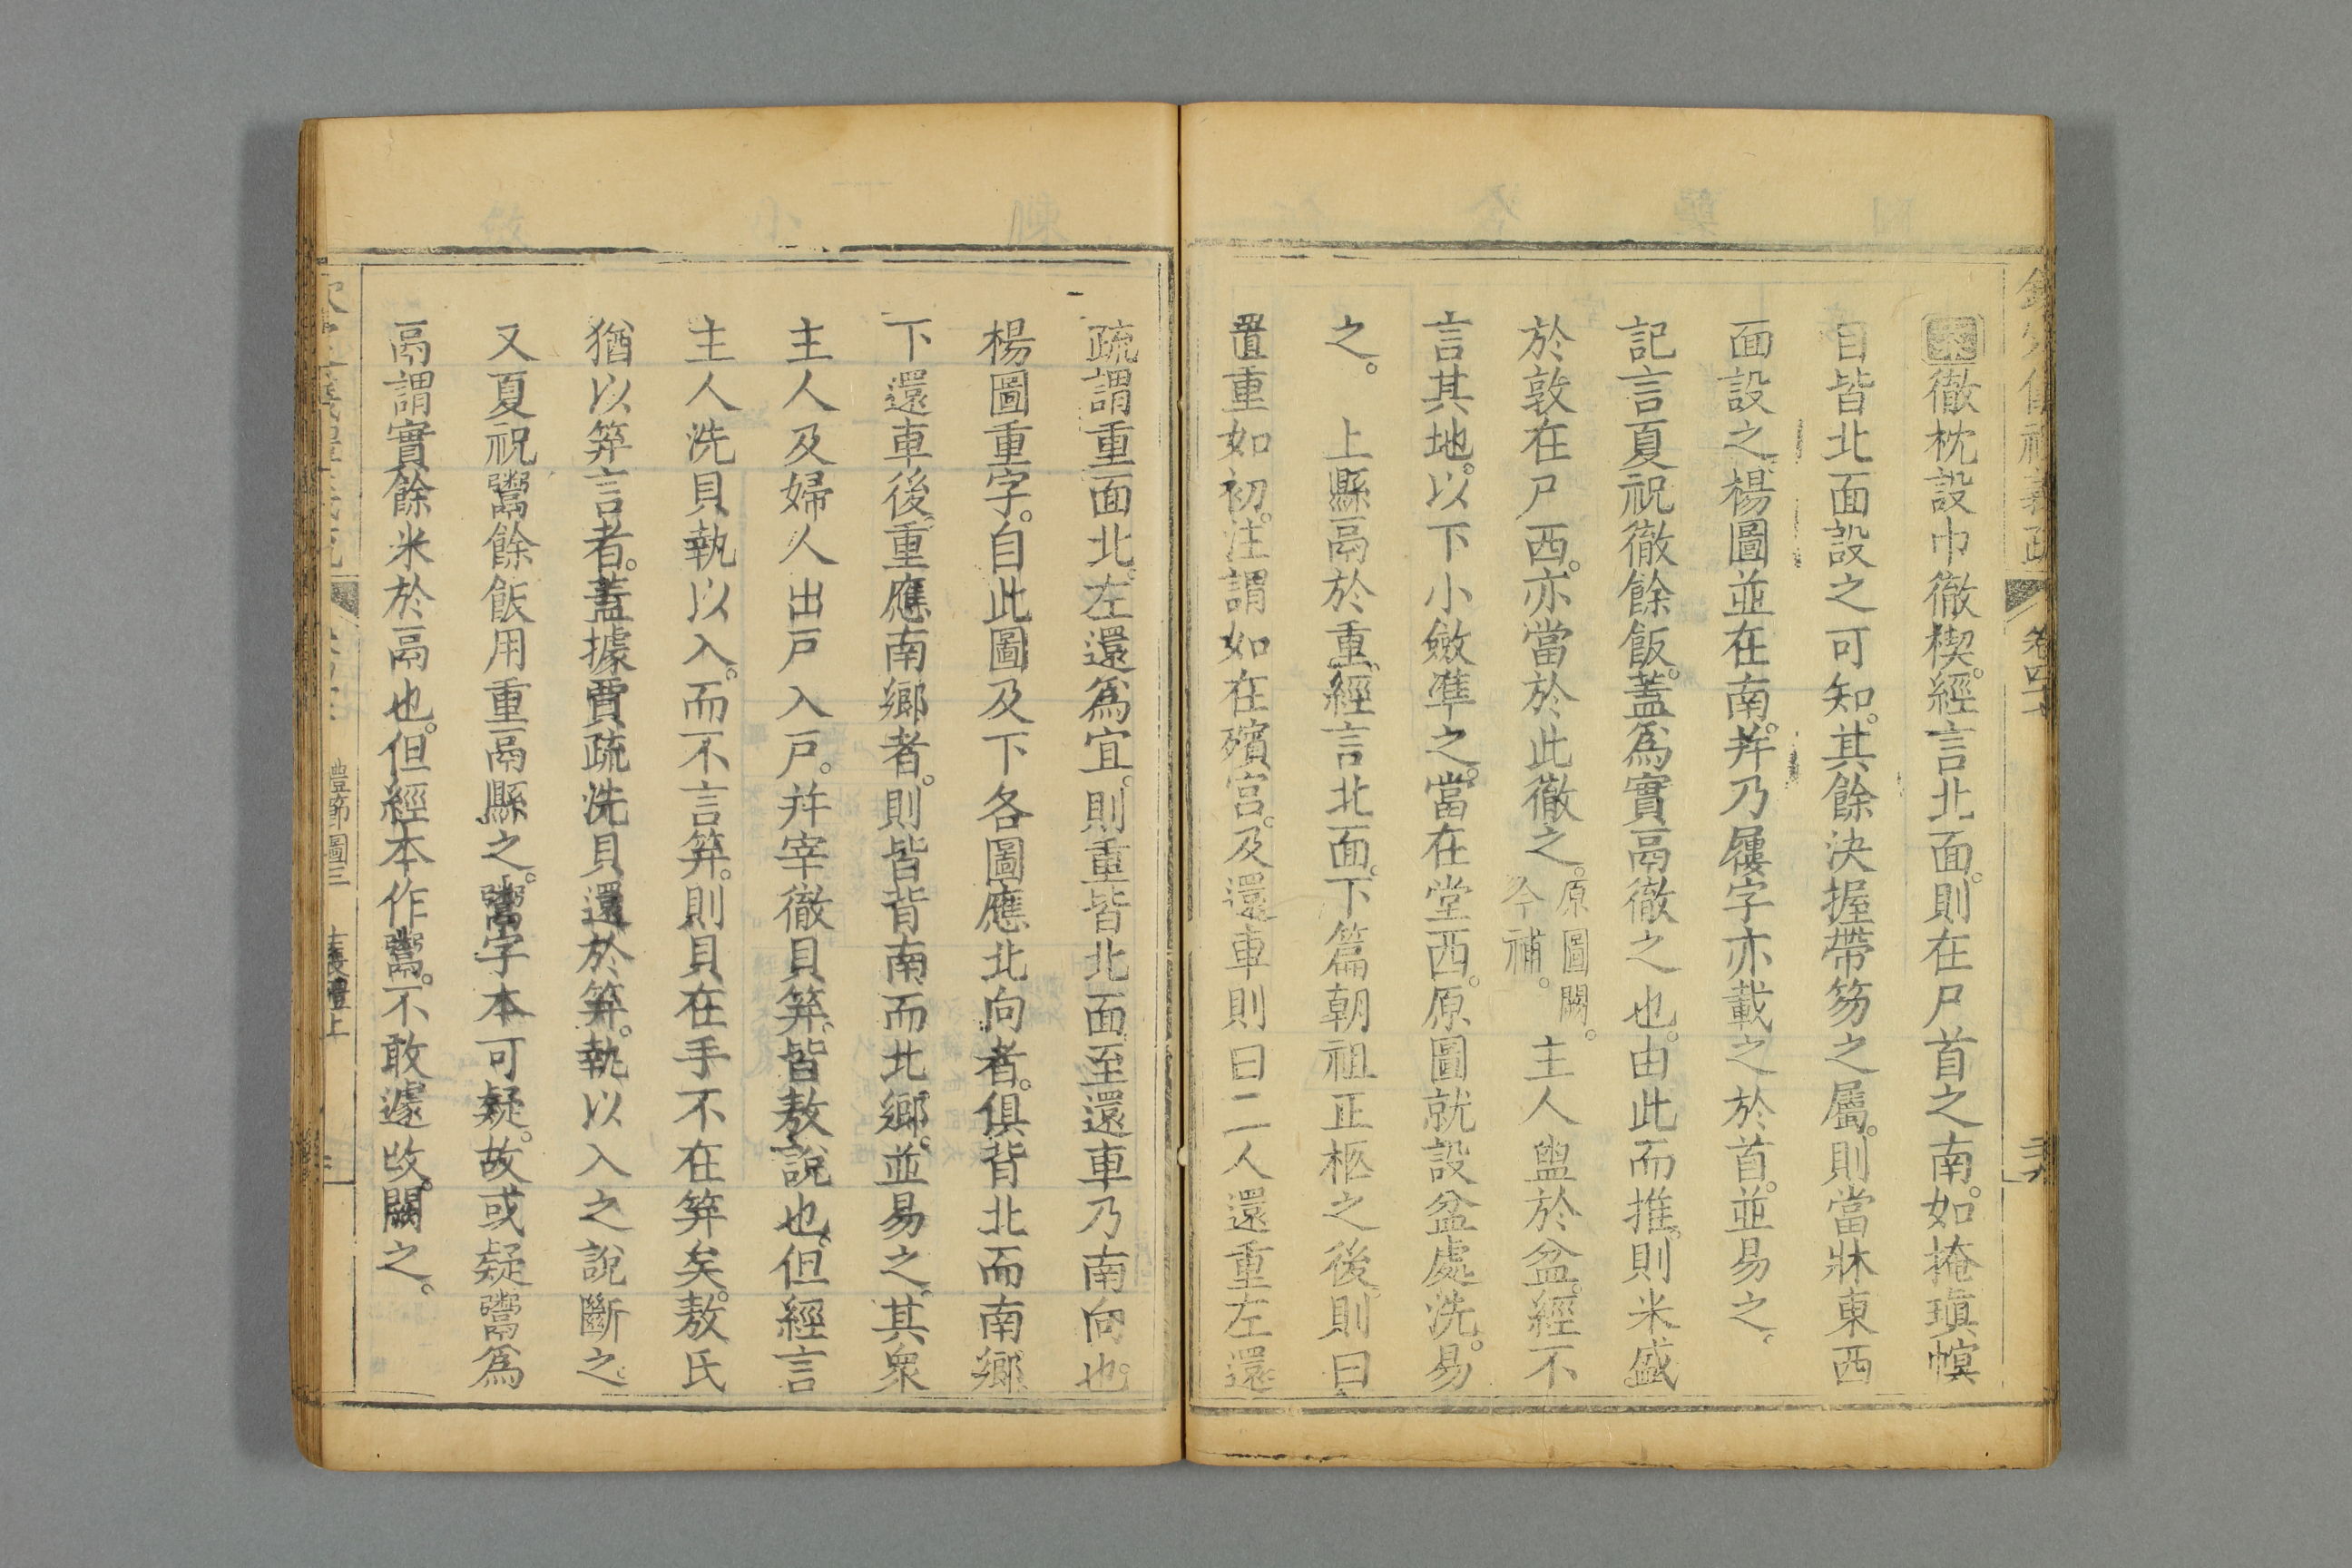 欽定儀禮義疏
卷四十
案徹枕設巾徹楔。經言北面。則在尸首之南。如掩瑱幎
目皆北面設之可知。其餘決握帶笏之屬。則當牀東西
面設之楊圖並在南。并乃屨字亦載之於首。並易之。
記言夏祝徹餘飯。蓋爲實鬲徹之也。由此而推。則米盛
於敦在尸西。亦當於此徹之。原圖闕。今補。主人盥於盆。經不
言其地。以下小斂凖之。當在堂西。原圖就設盆處洗。易
之。 上縣鬲於重。經言北面。下篇朝祖正柩之後。則曰
置重如初。注謂如在殯宮。及還車則曰二人還重左還
疏謂重面北。左還爲宜。則重皆北面至還車乃南向也。
楊圖重字。自此圖及下各圖應北向者。俱背北而南鄉
下還車後。重應南鄉者。則皆背南而北鄉。並易之。其衆
主人及婦人出戸入戸。并宰徹貝筓。皆敖說也。但經言
主人洗貝執以入。而不言筓。則貝在手不在筓矣。敖氏
猶以筓言者。蓋據賈疏洗貝還於筓。執以入之說斷之
又夏祝鬻餘飯用重鬲縣之。鬻字本可疑。故或疑鬻爲
鬲謂實餘米於鬲也。但經本作鬻。不敢遽改。闕之。
禮節圖三 士喪禮上